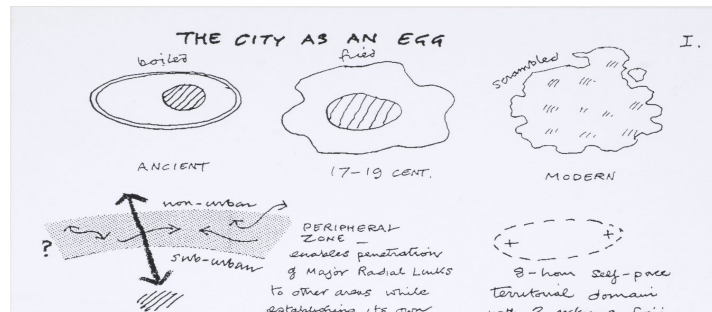 THE CITY AS AN EGG
I.
boiled
fried
scrambled
ANCIENT
17-19 CENT.
MODERN
non-urban
?
sub-urban
PERIPHERAL
ZONE —
enables penetration
of Major Radial Links
to other areas while
establishing its own
8-hour self-pace
territorial domain